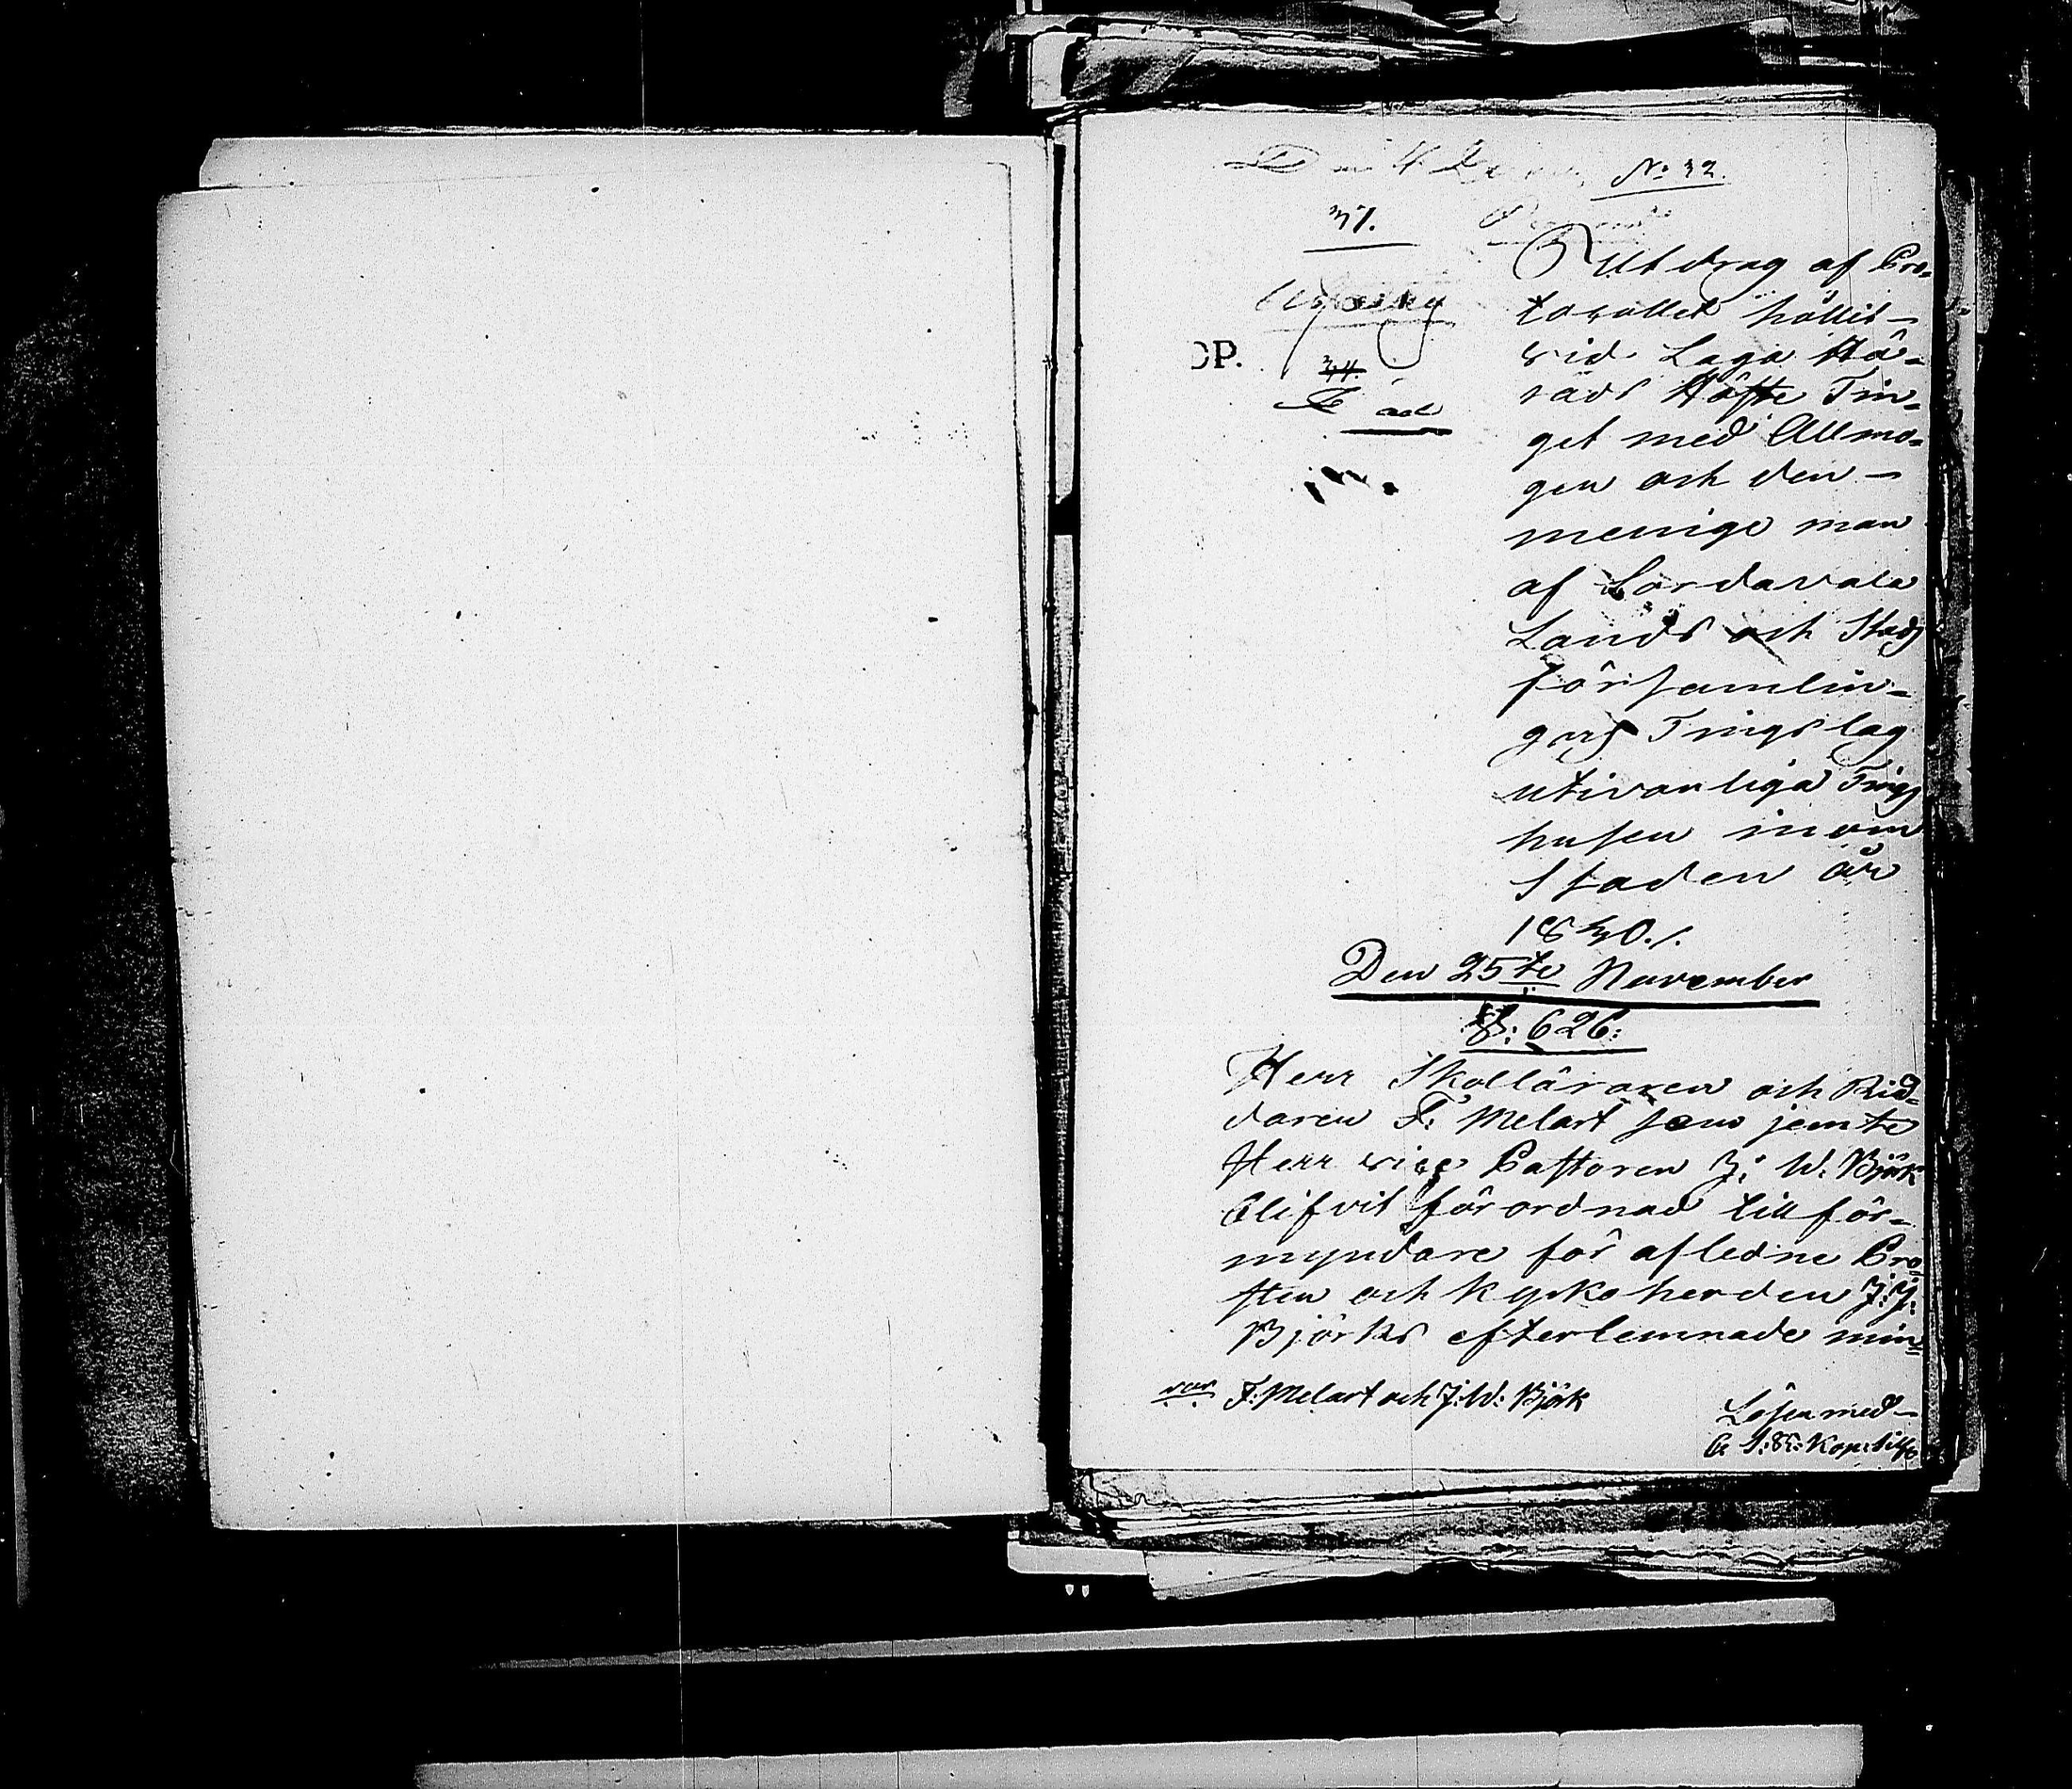 No 32.
37.
Utdrag af Pro-
tocollet hållit
vid Laga Hä-
rads Höste Tin-
get med Allmo-
gen och den
menige man
af Sordavala
Lands och Stads
församlin-
gars Tingslag
uti vanliga Tings
husen inom
Staden år
1840./.
Den 25te November
§: 626:
Herr Skolläraren och Rid-
daren F: Melart som jemte
Herr vice Pastoren J: W: Björk
blifvit förordnad till för-
myndare för afledne Pro
sten och Kyrkoherden J: J:
Björks efterlemnade min
F: Melart och J: W: Björk
Lösen med